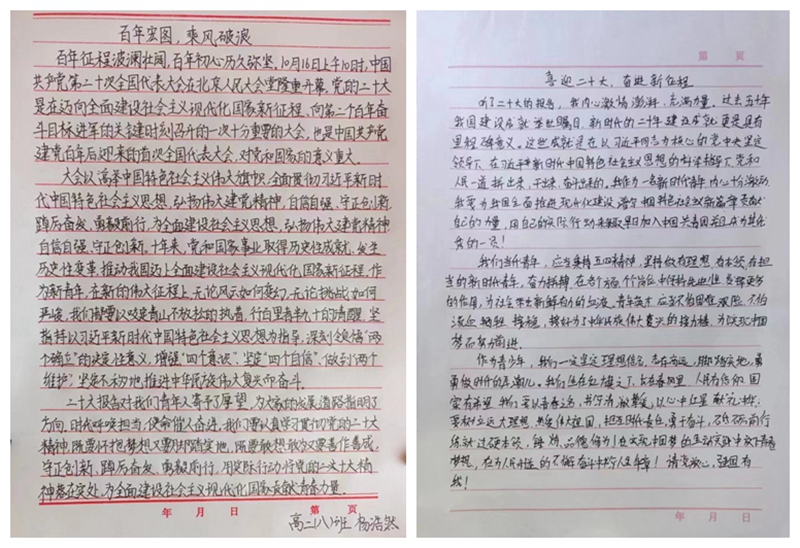 百年宏图，乘风破浪
百年征程波澜壮阔，百年初心历久弥坚。10月16日上午10时，中国
共产党第二十次全国代表大会在北京人民大会堂隆重开幕，党的二十大
是在迈向全面建设社会主义现代化国家新征程、向第二个百年奋
斗目标进军的关键时刻召开的一次十分重要的大会，也是中国共产党
建党百年后迎来的首次全国代表大会，对党和国家的意义重大。
大会以高举中国特色社会主义伟大旗帜，全面贯彻习近平新时
代中国特色社会主义思想，弘扬伟大建党精神，自信自强、守正创新，
踔厉奋发、勇毅前行，为全面建设社会主义思想，弘扬伟大建党精神
自信自强、守正创新。十年来，党和国家事业取得历史性成就、发生
历史性变革，推动我国迈上全面建设社会主义现代化国家新征程。作
为新青年，在新的伟大征程上，无论风云如何变幻，无论挑战如何
严峻，我们都要以咬定青山不放松的执着，行百里者半九十的清醒，坚
指持以习近平新时代中国特色社会主义思想为指导，深刻领悟“两
个确立”的决定性意义，增强“四个意识”、坚定“四个自信”、做到“两个
维护”，坚定不移地推进中华民族伟大复兴而奋斗。
二十大报告对我们青年人寄予了厚望，为大家的成长道路指明了
方向。时代呼唤担当，使命催人奋进。我们要认真学习贯彻党的二十大
精神，既要怀抱梦想又要脚踏实地，既要敢想敢为又要善作善成；
守正创新、踔厉奋发、勇毅前行，用实际行动将党的二十大精
神落在实处，为全面建设社会主义现代化国家贡献青春力量。
年 月 日 第 页
高二(八)班 杨浩然
第 页
喜迎二十大，奋进新征程
听了二十大的报告，我内心激情澎湃，充满力量。过去五十年
我国建设成就举世瞩目，新时代的二十年建设成就更是具有
里程碑意义。这些成就是在以习近平同志为核心的党中央坚定
领导下，在习近平新时代中国特色社会主义思想的科学指导下，党和
人民一道拼出来，干出来，奋斗出来的。我作为一名新时代青年内心十分激动
我要为我国全面推进现代化建设，谱写中国特色社会主义新篇章贡献
自己的力量，用自己的实际行动来争取早日加入中国共青团并成为其优
秀的一员！
我们当代青年，应当秉持五四精神，坚持做有理想，有本领，有担
当的新时代青年，奋力拼搏，在各个
的信用，为社会带来新鲜有力的血液。青年
接好为了中华民族伟大复兴的接力棒，为实现中国
梦而努力前进。
作为青少年，我们一定坚定理想信念，志存高远，脚踏实地，勇
勇做时代的弄潮儿。我们生在红旗之下，长在春风里，人民有信仰，国
家有希望，我们
担当时代责任，勇于奋斗，砥砺前行
练就过硬本领，锤炼品德修为！在实现中国梦的生动实践中放飞青春
梦想，在为人民利益的不懈奋斗中书写人生华章！请党放心，强国有
我！
年 月 日